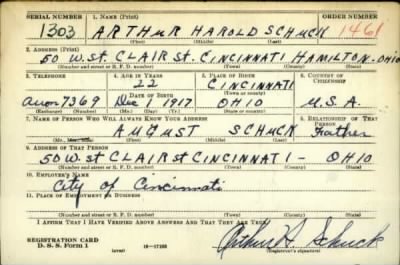 SERIAL NUMBER 1. NAME (Print) ORDER NUMBER
1303 ARTHUR HAROLD SCHUCK 1461
(First) (Middle) (Last)
2. ADDRESS (Print)
50 W. St. CLAIR St. CINCINNATI HAMILTON-OHIO
(Number and street or R. F. D. number) (Town) (County) (State)
3. TELEPHONE 4. AGE IN YEARS 5. PLACE OF BIRTH 6. COUNTRY OF CITIZENSHIP
22 CINCINNATI
DATE OF BIRTH (Town or county)
7369 Dec 1917 OHIO U.S.A.
(Exchange) (Number) (Mo.) (Day) (Yr.) (State or country)
7. NAME OF PERSON WHO WILL ALWAYS KNOW YOUR ADDRESS 8. RELATIONSHIP OF THAT PERSON
AUGUST SCHUCK Father
(First) (Middle) (Last)
9. ADDRESS OF THAT PERSON
50 W. St CLAIR St CINCINNATI - OHIO
(Number and street or R. F. D. number) (Town) (County) (State)
10. EMPLOYER'S NAME
City of Cincinnati
11. PLACE OF EMPLOYMENT OR BUSINESS
(Number and street or R. F. D. number) (Town) (County) (State)
I AFFIRM THAT I HAVE VERIFIED ABOVE ANSWERS AND THAT THEY ARE TRUE.
REGISTRATION CARD
D. S. S. Form 1 (over) Arthur H. Schuck
(Registrant's signature)